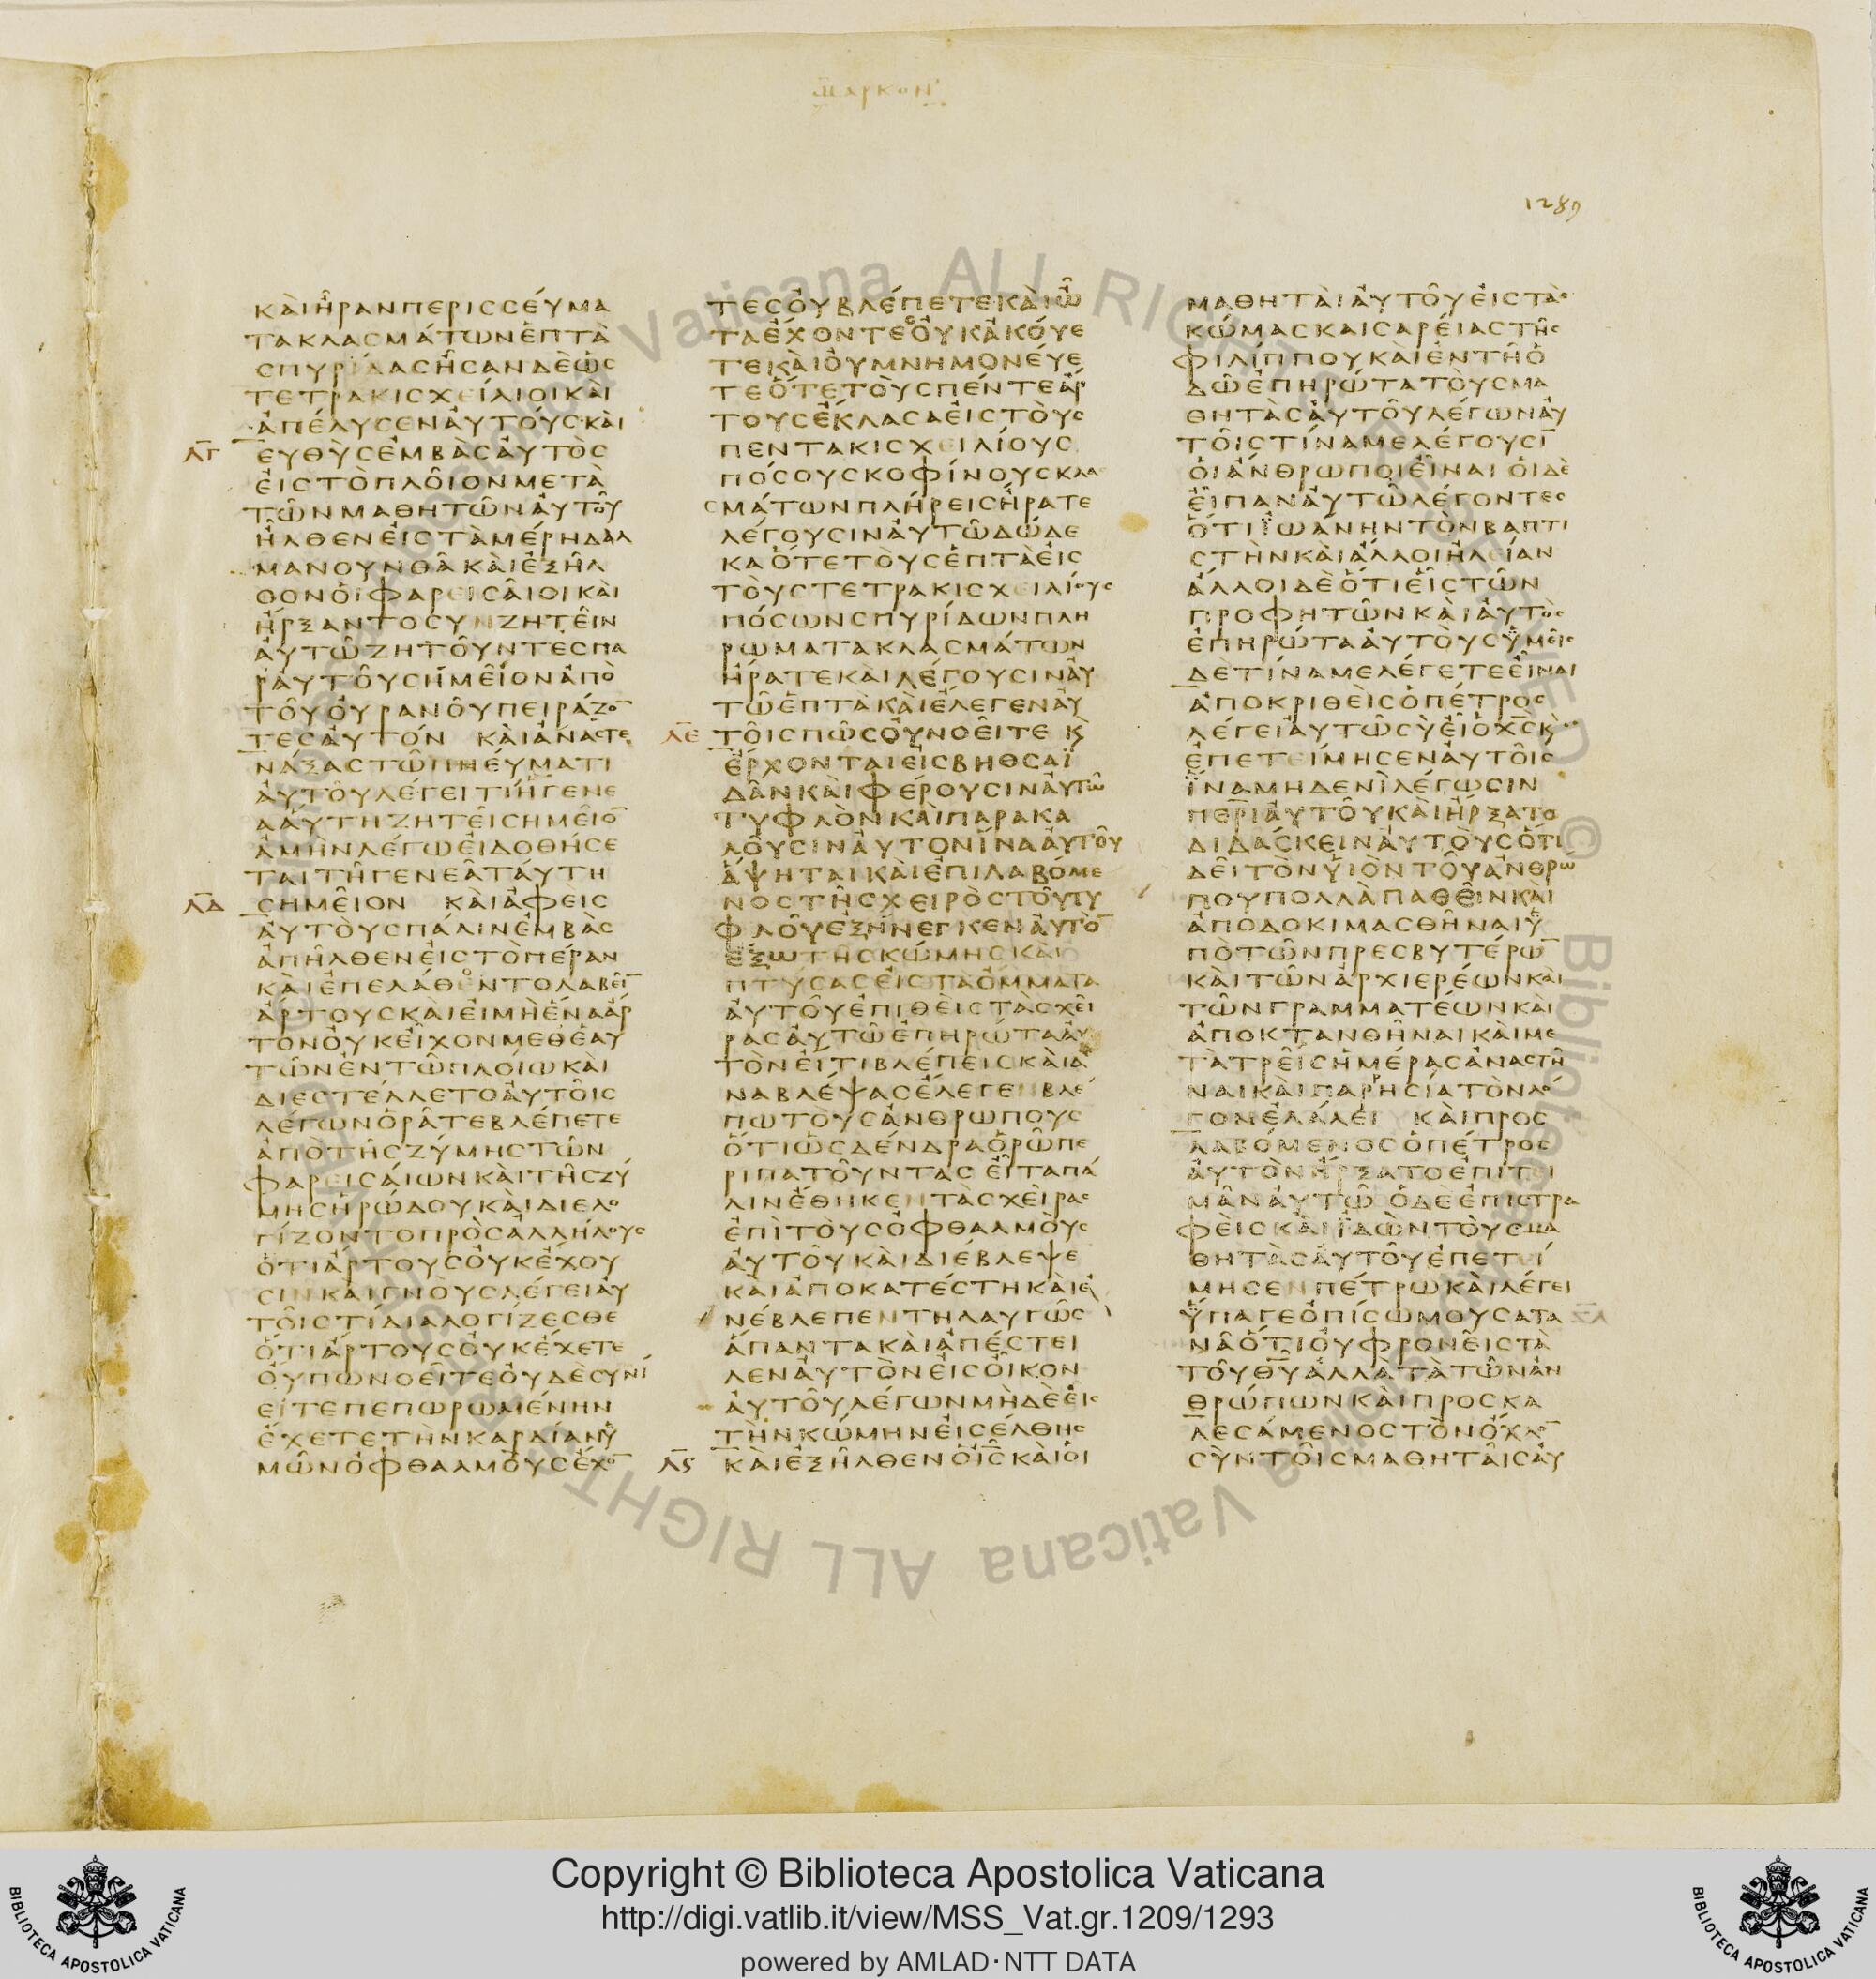 ΜΑΡΚΟΝ
1289
ΚΑΙΗΡΑΝΠΕΡΙΣΣΕΥΜΑ
ΤΑΚΛΑΣΜΑΤΩΝΕΠΤΑ
ΣΠΥΡΙΔΑΣΗΣΑΝΔΕΩΣ
ΤΕΤΡΑΚΙΣΧΕΙΛΙΟΙΚΑΙ
ΑΠΕΛΥΣΕΝΑΥΤΟΥΣΚΑΙ
ΛΓ ΕΥΘΥΣΕΜΒΑΣΑΥΤΟΣ
ΕΙΣΤΟΠΛΟΙΟΝΜΕΤΑ
ΤΩΝΜΑΘΗΤΩΝΑΥΤΟΥ
ΗΛΘΕΝΕΙΣΤΑΜΕΡΗΔΑΛ
ΜΑΝΟΥΝΘΑΚΑΙΕΞΗΛ
ΘΟΝΟΙΦΑΡΕΙΣΑΙΟΙΚΑΙ
ΗΡΞΑΝΤΟΣΥΝΖΗΤΕΙΝ
ΑΥΤΩΖΗΤΟΥΝΤΕΣΠΑ
ΡΑΥΤΟΥΣΗΜΕΙΟΝΑΠΟ
ΤΟΥΟΥΡΑΝΟΥΠΕΙΡΑΖΟ̅
ΤΕΣΑΥΤΟΝ ΚΑΙΑΝΑΣΤΕ
ΝΑΞΑΣΤΩΠΝΕΥΜΑΤΙ
ΑΥΤΟΥΛΕΓΕΙΤΙΗΓΕΝΕ
ΑΑΥΤΗΖΗΤΕΙΣΗΜΕΙΟ̅
ΑΜΗΝΛΕΓΩΕΙΔΟΘΗΣΕ
ΤΑΙΤΗΓΕΝΕΑΤΑΥΤΗ
ΛΔ ΣΗΜΕΙΟΝ ΚΑΙΑΦΕΙΣ
ΑΥΤΟΥΣΠΑΛΙΝΕΜΒΑΣ
ΑΠΗΛΘΕΝΕΙΣΤΟΠΕΡΑΝ
ΚΑΙΕΠΕΛΑΘΟΝΤΟΛΑΒΕΙ̅
ΑΡΤΟΥΣΚΑΙΕΙΜΗΕΝΑΑΡ
ΤΟΝΟΥΚΕΙΧΟΝΜΕΘΕΑΥ
ΤΩΝΕΝΤΩΠΛΟΙΩΚΑΙ
ΔΙΕΣΤΕΛΛΕΤΟΑΥΤΟΙΣ
ΛΕΓΩΝΟΡΑΤΕΒΛΕΠΕΤΕ
ΑΠΟΤΗΣΖΥΜΗΣΤΩΝ
ΦΑΡΕΙΣΑΙΩΝΚΑΙΤΗΣΖΥ
ΜΗΣΗΡΩΔΟΥΚΑΙΔΙΕΛΟ
ΓΙΖΟΝΤΟΠΡΟΣΑΛΛΗΛΟΥΣ
ΟΤΙΑΡΤΟΥΣΟΥΚΕΧΟΥ
ΣΙΝΚΑΙΓΝΟΥΣΛΕΓΕΙΑΥ
ΤΟΙΣΤΙΔΙΑΛΟΓΙΖΕΣΘΕ
ΟΤΙΑΡΤΟΥΣΟΥΚΕΧΕΤΕ
ΟΥΠΩΝΟΕΙΤΕΟΥΔΕΣΥΝΙ
ΕΙΤΕΠΕΠΩΡΩΜΕΝΗΝ
ΕΧΕΤΕΤΗΝΚΑΡΔΙΑΝΥ
ΜΩΝΟΦΘΑΛΜΟΥΣΕΧΟ̅
ΤΕΣΟΥΒΛΕΠΕΤΕΚΑΙΩ
ΤΑΕΧΟΝΤΕΣΟΥΚΑΚΟΥΕ
ΤΕΚΑΙΟΥΜΝΗΜΟΝΕΥΕ
ΤΕΟΤΕΤΟΥΣΠΕΝΤΕΑΡ
ΤΟΥΣΕΚΛΑΣΑΕΙΣΤΟΥΣ
ΠΕΝΤΑΚΙΣΧΕΙΛΙΟΥΣ
ΠΟΣΟΥΣΚΟΦΙΝΟΥΣΚΛΑ
ΣΜΑΤΩΝΠΛΗΡΕΙΣΗΡΑΤΕ
ΛΕΓΟΥΣΙΝΑΥΤΩΔΩΔΕ
ΚΑΟΤΕΤΟΥΣΕΠΤΑΕΙΣ
ΤΟΥΣΤΕΤΡΑΚΙΣΧΕΙΛΙΟΥΣ
ΠΟΣΩΝΣΠΥΡΙΔΩΝΠΛΗ
ΡΩΜΑΤΑΚΛΑΣΜΑΤΩΝ
ΗΡΑΤΕΚΑΙΛΕΓΟΥΣΙΝΑΥ
ΤΩΕΠΤΑΚΑΙΕΛΕΓΕΝΑΥ
ΛΕ ΤΟΙΣΠΩΣΟΥΝΟΕΙΤΕ Κ
ΕΡΧΟΝΤΑΙΕΙΣΒΗΘΣΑΪ
ΔΑΝΚΑΙΦΕΡΟΥΣΙΝΑΥΤΩ
ΤΥΦΛΟΝΚΑΙΠΑΡΑΚΑ
ΛΟΥΣΙΝΑΥΤΟΝΙΝΑΑΥΤΟΥ
ΑΨΗΤΑΙΚΑΙΕΠΙΛΑΒΟΜΕ
ΝΟΣΤΗΣΧΕΙΡΟΣΤΟΥΤΥ
ΦΛΟΥΕΞΗΝΕΓΚΕΝΑΥΤΟ̅
ΕΞΩΤΗΣΚΩΜΗΣΚΑΙ
ΠΤΥΣΑΣΕΙΣΤΑΟΜΜΑΤΑ
ΑΥΤΟΥΕΠΙΘΕΙΣΤΑΣΧΕΙ
ΡΑΣΑΥΤΩΕΠΗΡΩΤΑΑΥ
ΤΟΝΕΙΤΙΒΛΕΠΕΙΣΚΑΙΑ
ΝΑΒΛΕΨΑΣΕΛΕΓΕΝΒΛΕ
ΠΩΤΟΥΣΑΝΘΡΩΠΟΥΣ
ΟΤΙΩΣΔΕΝΔΡΑΟΡΩΠΕ
ΡΙΠΑΤΟΥΝΤΑΣ ΕΙΤΑΠΑ
ΛΙΝΕΘΗΚΕΝΤΑΣΧΕΙΡΑΣ
ΕΠΙΤΟΥΣΟΦΘΑΛΜΟΥΣ
ΑΥΤΟΥΚΑΙΔΙΕΒΛΕΨΕ
ΚΑΙΑΠΟΚΑΤΕΣΤΗΚΑΙΕ
ΝΕΒΛΕΠΕΝΤΗΛΑΥΓΩΣ
ΑΠΑΝΤΑΚΑΙΑΠΕΣΤΕΙ
ΛΕΝΑΥΤΟΝΕΙΣΟΙΚΟΝ
ΑΥΤΟΥΛΕΓΩΝΜΗΔΕΕΙΣ
ΤΗΝΚΩΜΗΝΕΙΣΕΛΘΗΣ
ΛϚ ΚΑΙΕΞΗΛΘΕΝΟΙ̅Σ̅ΚΑΙΟΙ
ΜΑΘΗΤΑΙΑΥΤΟΥΕΙΣΤΑΣ
ΚΩΜΑΣΚΑΙΣΑΡΕΙΑΣΤΗΣ
ΦΙΛΙΠΠΟΥΚΑΙΕΝΤΗΟ
ΔΩΕΠΗΡΩΤΑΤΟΥΣΜΑ
ΘΗΤΑΣΑΥΤΟΥΛΕΓΩΝΑΥ
ΤΟΙΣΤΙΝΑΜΕΛΕΓΟΥΣΙ̅
ΟΙΑΝΘΡΩΠΟΙΕΙΝΑΙ ΟΙΔΕ
ΕΙΠΑΝΑΥΤΩΛΕΓΟΝΤΕΣ
ΟΤΙΪΩΑΝΗΝΤΟΝΒΑΠΤΙ
ΣΤΗΝΚΑΙΑΛΛΟΙΗΛΕΙΑΝ
ΑΛΛΟΙΔΕΟΤΙΕΙΣΤΩΝ
ΠΡΟΦΗΤΩΝΚΑΙΑΥΤΟΣ
ΕΠΗΡΩΤΑΑΥΤΟΥΣΫΜΕΙΣ
ΔΕΤΙΝΑΜΕΛΕΓΕΤΕΕΙΝΑΙ
ΑΠΟΚΡΙΘΕΙΣΟΠΕΤΡΟΣ
ΛΕΓΕΙΑΥΤΩΣΥΕΙΟΧ̅Σ̅Κ
ΕΠΕΤΕΙΜΗΣΕΝΑΥΤΟΙΣ
ΪΝΑΜΗΔΕΝΙΛΕΓΩΣΙΝ
ΠΕΡΙΑΥΤΟΥΚΑΙΗΡΞΑΤΟ
ΔΙΔΑΣΚΕΙΝΑΥΤΟΥΣΟΤΙ
ΔΕΙΤΟΝΥΙΟΝΤΟΥΑΝΘΡΩ
ΠΟΥΠΟΛΛΑΠΑΘΕΙΝΚΑΙ
ΑΠΟΔΟΚΙΜΑΣΘΗΝΑΙΫ
ΠΟΤΩΝΠΡΕΣΒΥΤΕΡΩ̅
ΚΑΙΤΩΝΑΡΧΙΕΡΕΩΝΚΑΙ
ΤΩΝΓΡΑΜΜΑΤΕΩΝΚΑΙ
ΑΠΟΚΤΑΝΘΗΝΑΙΚΑΙΜΕ
ΤΑΤΡΕΙΣΗΜΕΡΑΣΑΝΑΣΤΗ
ΝΑΙΚΑΙΠΑΡΡΗΣΙΑΤΟΝΛΟ
ΓΟΝΕΛΑΛΕΙ ΚΑΙΠΡΟΣ
ΛΑΒΟΜΕΝΟΣΟΠΕΤΡΟΣ
ΑΥΤΟΝΗΡΞΑΤΟΕΠΙΤΙ
ΜΑΝΑΥΤΩ ΟΔΕΕΠΙΣΤΡΑ
ΦΕΙΣΚΑΙΪΔΩΝΤΟΥΣΜΑ
ΘΗΤΑΣΑΥΤΟΥΕΠΕΤΕΙ
ΜΗΣΕΝΠΕΤΡΩΚΑΙΛΕΓΕΙ
ΫΠΑΓΕΟΠΙΣΩΜΟΥΣΑΤΑ
ΝΑΟΤΙΟΥΦΡΟΝΕΙΣΤΑ
ΤΟΥΘ̅Υ̅ΑΛΛΑΤΑΤΩΝΑΝ
ΘΡΩΠΩΝΚΑΙΠΡΟΣΚΑ
ΛΕΣΑΜΕΝΟΣΤΟΝΟΧΛΟ̅
ΣΥΝΤΟΙΣΜΑΘΗΤΑΙΣΑΥ
Biblioteca Apostolica Vaticana ALL RIGHTS RESERVED ©
Copyright © Biblioteca Apostolica Vaticana
http://digi.vatlib.it/view/MSS_Vat.gr.1209/1293
powered by AMLAD·NTT DATA
BIBLIOTECA APOSTOLICA VATICANA
BIBLIOTECA APOSTOLICA VATICANA